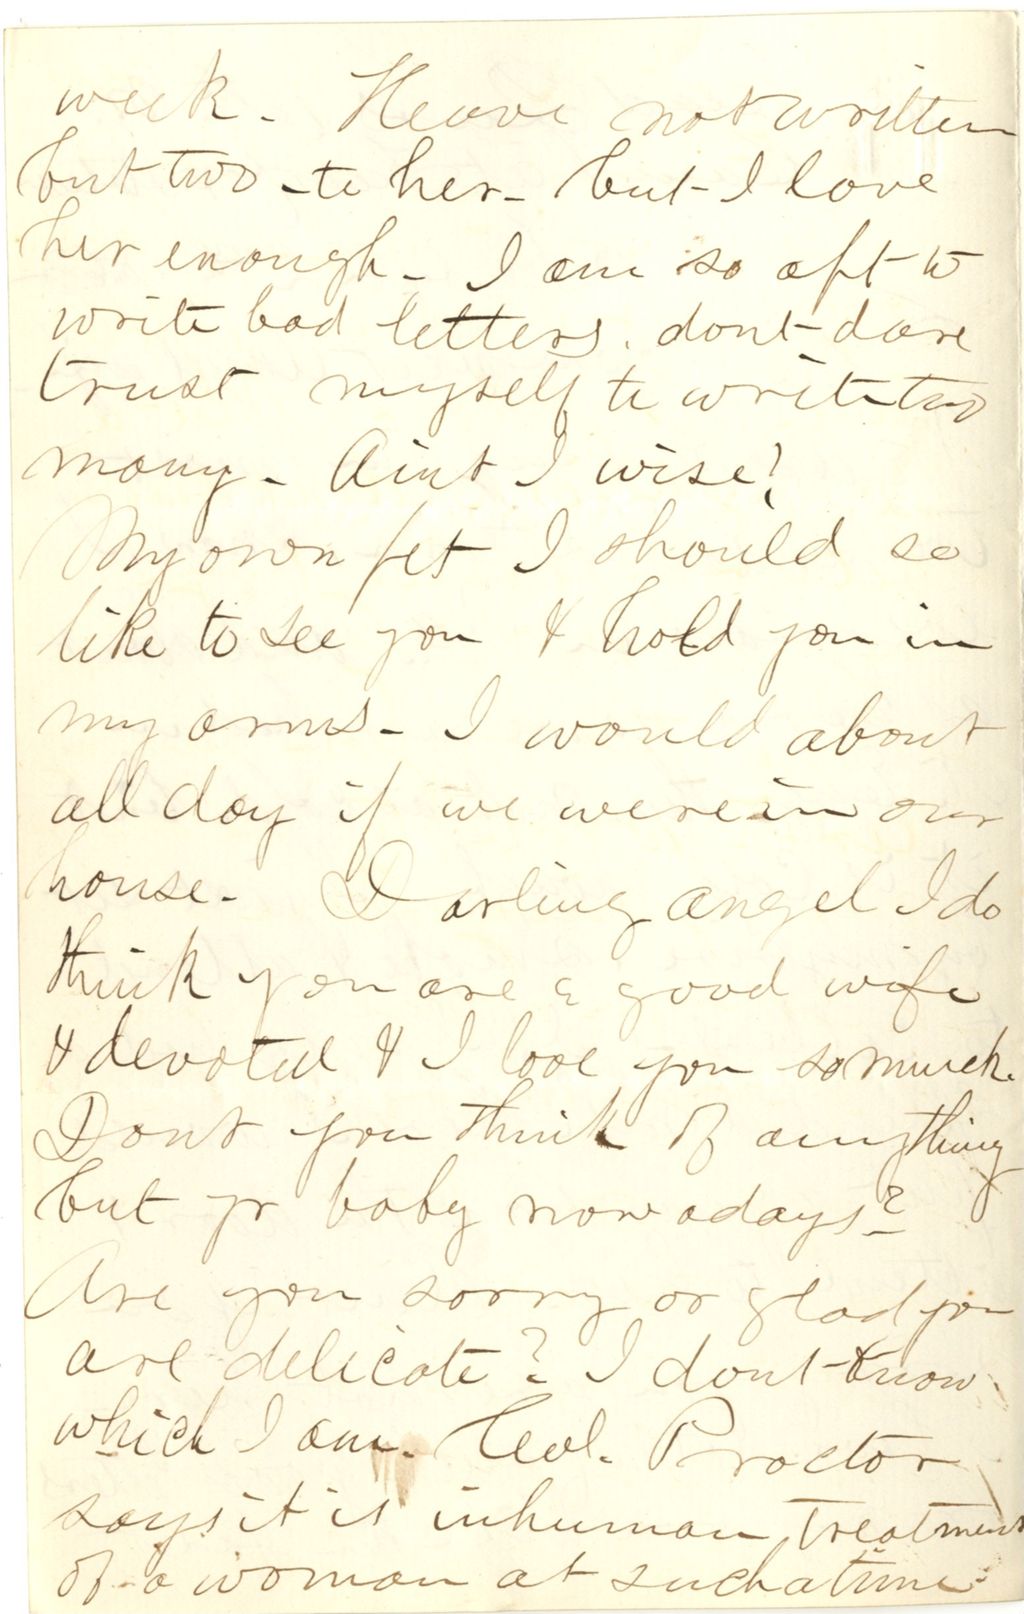 week. Heave not written
but two - to her - but I love
her enough - I am so apt to
write bad letters. dont dare
trust myself to write two
many - Aint I wise!
My own pet I should so
like to see you & hold you in
my arms - I would about
all day if we were in our
house - Darling angel I do
think you are a good wife
& devoted & I love you so much.
Dont you think of anything
but yr baby nowadays?
Are you sorry or glad you
are delicate? I dont know
which I am. Col. Proctor
says it is inhuman treatment
of a woman at such a time